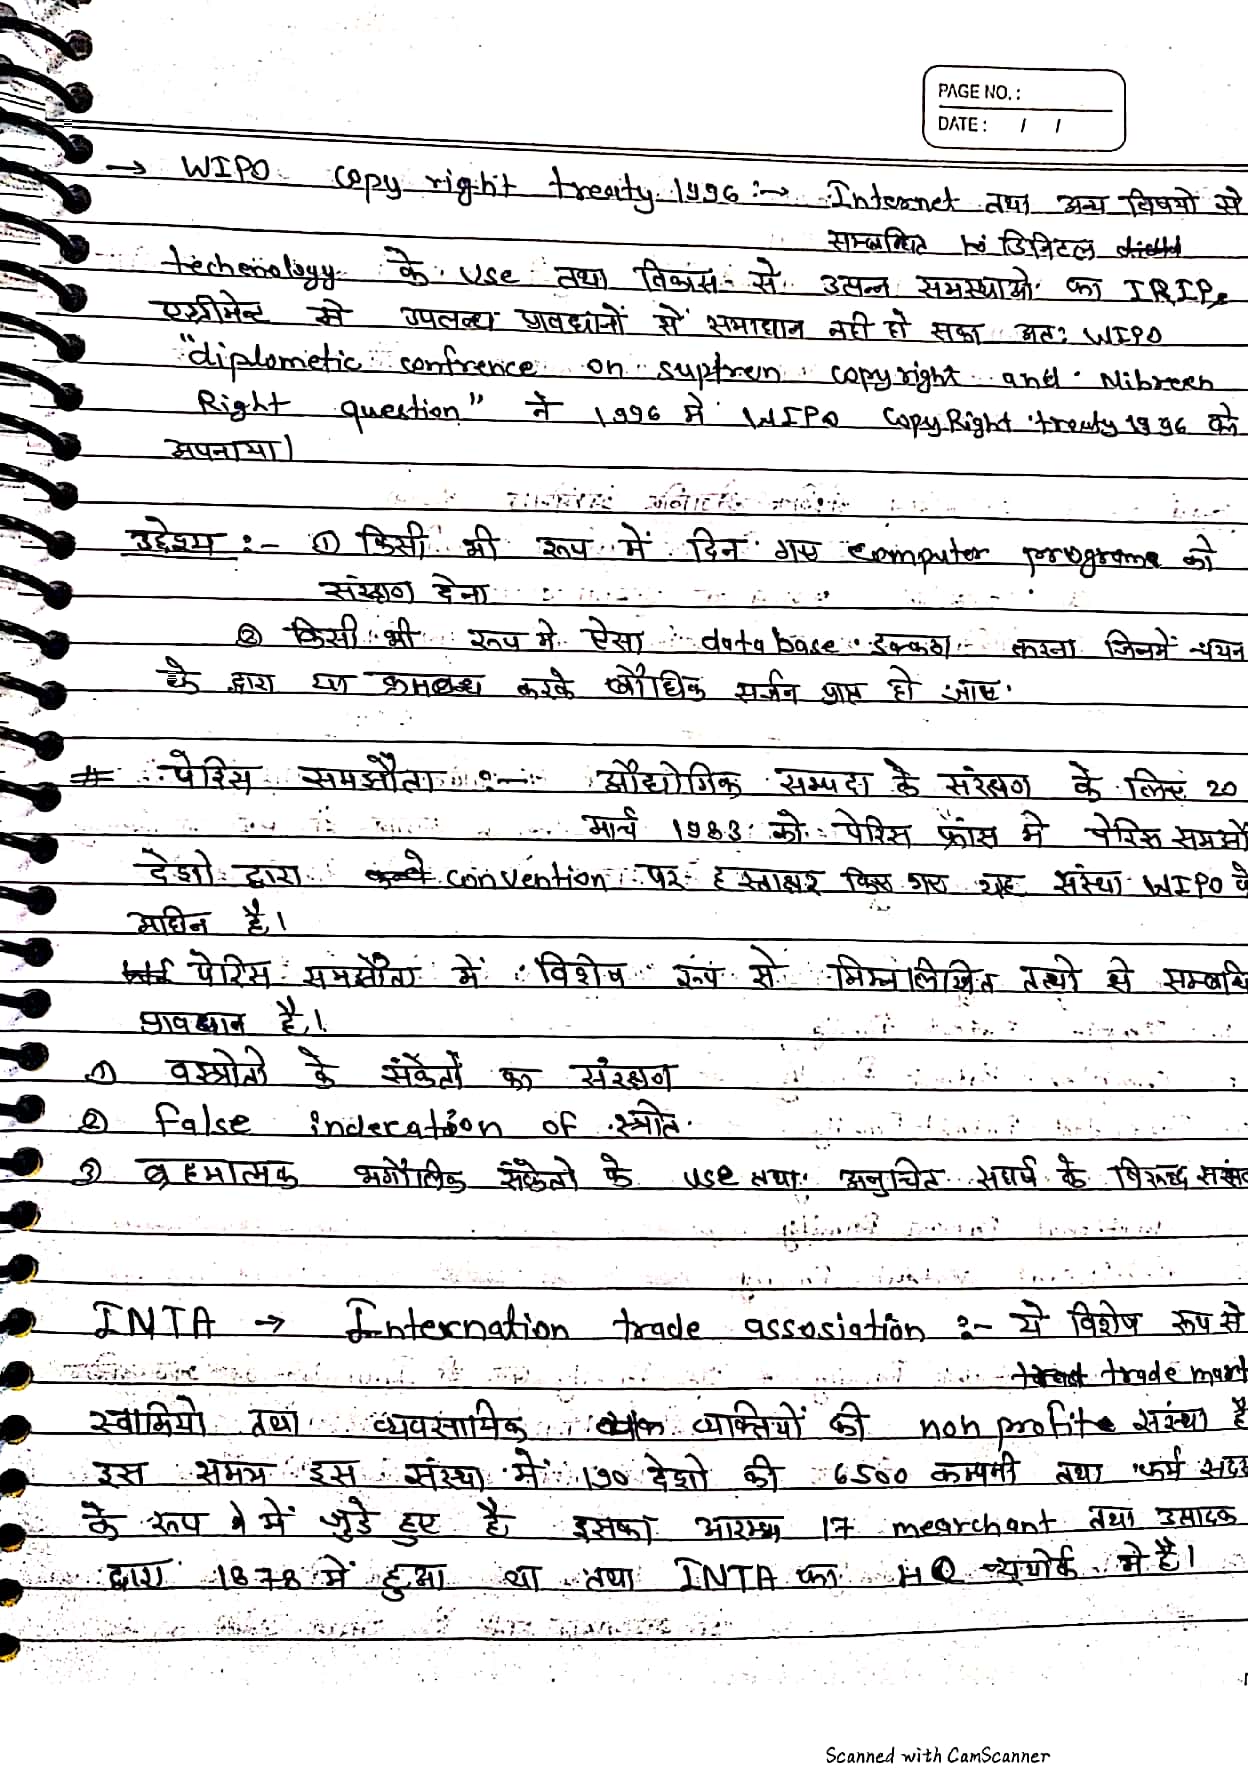 PAGE NO.:
DATE: / /
→ WIPO copy right treaty 1996 :→ Internet तथा अन्य विषयो से
सम्बन्धित डिजिटल
techenology के use तथा विकास से उत्पन्न समस्याओ का TRIPs
एग्रीमेन्ट से उपलब्ध प्रावधानों से समाधान नही हो सका अतः WIPO
"diplometic confrence on copyright and
Right question" ने 1996 मे WIPO CopyRight treaty 1996 को
अपनाया।
उद्देश्य :- ① किसी भी रूप में दिन गए computer programe को
संरक्षण देना
② किसी भी रूप मे ऐसा database इक्कठा करना जिनमें चयन
के द्वारा या क्रमबध्ध करके बौधिक सर्जन प्राप्त हो जाए.
# पेरिस समझौता :- औद्योगिक सम्पदा के संरक्षण के लिए 20
मार्च 1983 को पेरिस फ्रांस मे पेरिस समझौ
देशो द्वारा convention पर हस्ताक्षर किए गए यह संस्था WIPO के
आधिन है।
पेरिस समझौता में विशेष रूप से निम्नलिखित तत्यो से सम्बधि
प्रावधान है।
① वस्त्रोतो के संकेतों का संरक्षण
② false inderation of स्त्रोत.
③ ब्रहमात्मक भगौलिक संकेतो के use तथा अनुचित संघर्ष के विरूद्ध
INTA → Internation trade assosiation :- ये विशेष रूप से
trade mark
स्वामियो तथा व्यवसायिक व्यक्तियों की non profite संस्था है
इस समय इस संस्था में 190 देशो की 6500 कम्पनी तथा फर्म सदस्य
के रूप मे में जुडे हुए है इसका आरम्भ 17 mearchant तथा उत्पादक
द्वारा 1878 में हुआ था तथा INTA का HQ न्यूयोर्क मे है।
Scanned with CamScanner